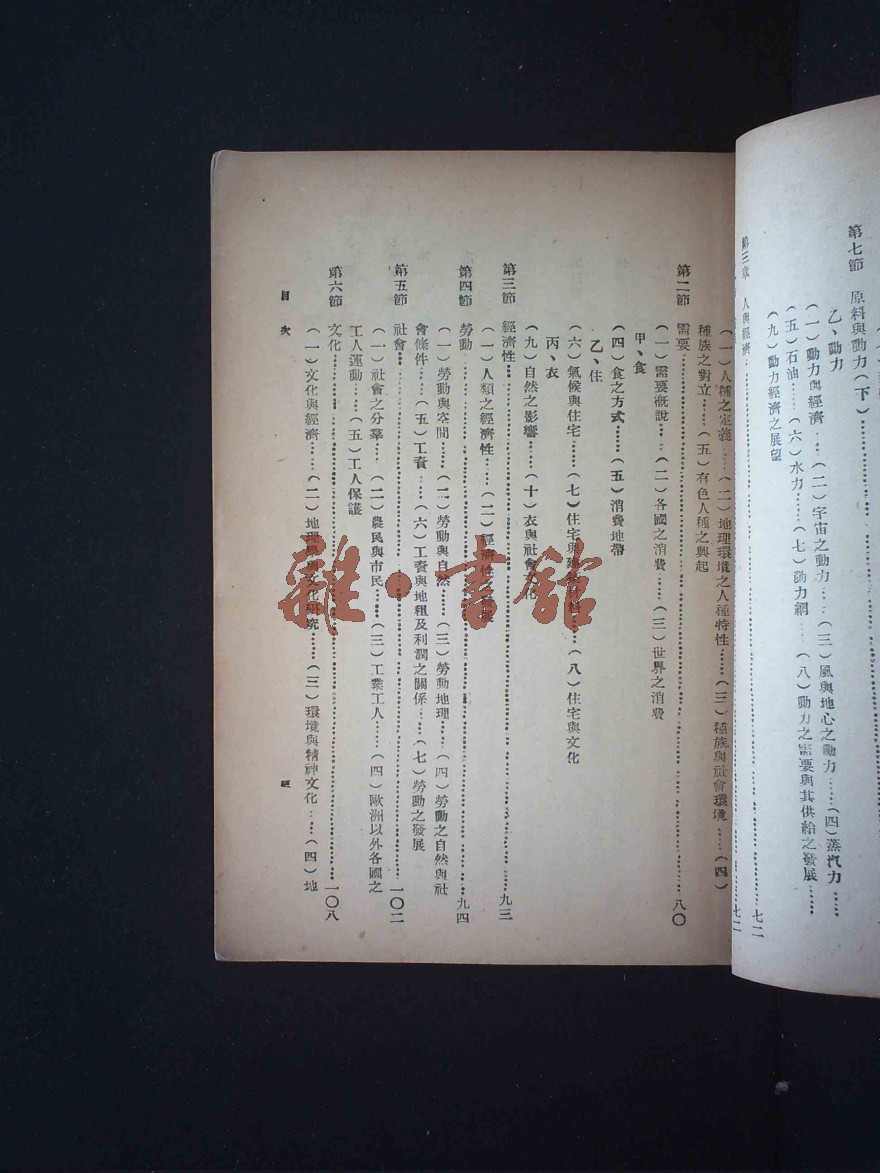 第七節 原料與動力(下)……
乙、動力
(一)動力與經濟……(二)宇宙之動力……(三)風與地心之動力……(四)蒸汽力……
(五)石油……(六)水力……(七)動力網……(八)動力之需要與其供給之發展……
(九)動力經濟之展望
第三章 人與經濟……七二
七二
(一)人種之定義……(二)地理環境之人種特性……(三)種族與社會環境……(四)
種族之對立……(五)有色人種之興起
第二節 需要……八〇
(一)需要概說……(二)各國之消費……(三)世界之消費
甲、食
(四)食之方式……(五)消費地帶
乙、住
(六)氣候與住宅……(七)住宅與建築材料……(八)住宅與文化
丙、衣
(九)自然之影響……(十)衣與社會文化
第三節 經濟性……九三
(一)人類之經濟性……(二)經濟性之發展
第四節 勞動……九四
(一)勞動與空間……(二)勞動與自然……(三)勞動地理……(四)勞動之自然與社
會條件……(五)工資……(六)工資與地租及利潤之關係……(七)勞動之發展
第五節 社會……一〇二
(一)社會之分羣……(二)農民與市民……(三)工業工人……(四)歐洲以外各國之
工人運動……(五)工人保護
第六節 文化……一〇八
(一)文化與經濟……(二)地理學與文化研究……(三)環境與精神文化……(四)地
目次
雜·書館